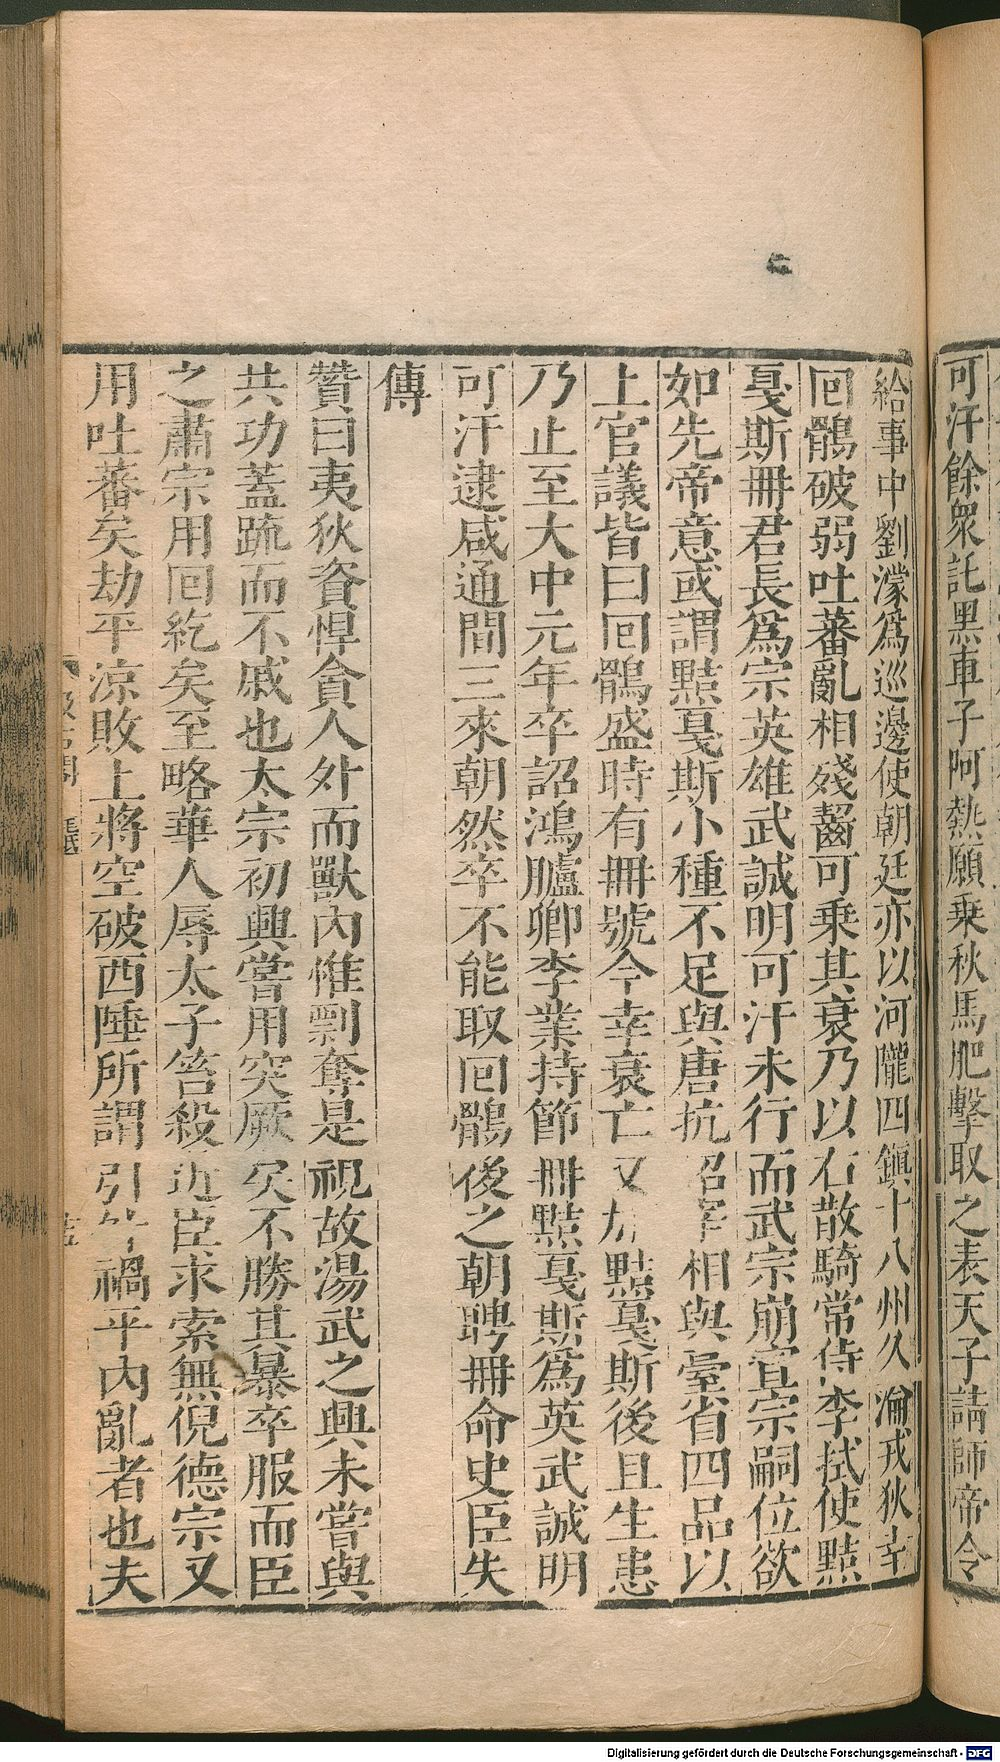 可汗餘衆託黑車子阿熱願乗秋馬肥擊取之表天子請師帝令
給事中劉濛爲巡邊使朝廷亦以河隴四鎮十八州久淪戎狄幸
回鶻破弱吐蕃亂相殘齧可乗其衰乃以右散騎常侍李拭使黠
戛斯冊君長爲宗英雄武誠明可汗未行而武宗崩宣宗嗣位欲
如先帝意或謂黠戛斯小種不足與唐抗詔宰相與臺省四品以
上官議皆曰回鶻盛時有冊號今幸衰亡又加黠戛斯後且生患
乃止至大中元年卒詔鴻臚卿李業持節冊黠戛斯爲英武誠明
可汗逮咸通間三來朝然卒不能取回鶻後之朝聘冊命史臣失
傳
贊曰夷狄資悍貪人外而獸內惟剽奪是視故湯武之興未嘗與
共功蓋疏而不戚也太宗初興嘗用突厥矣不勝其暴卒服而臣
之肅宗用回紇矣至略華人辱太子笞殺近臣求索無倪德宗又
用吐蕃矣劫平涼敗上將空破西陲所謂引外禍平內亂者也夫